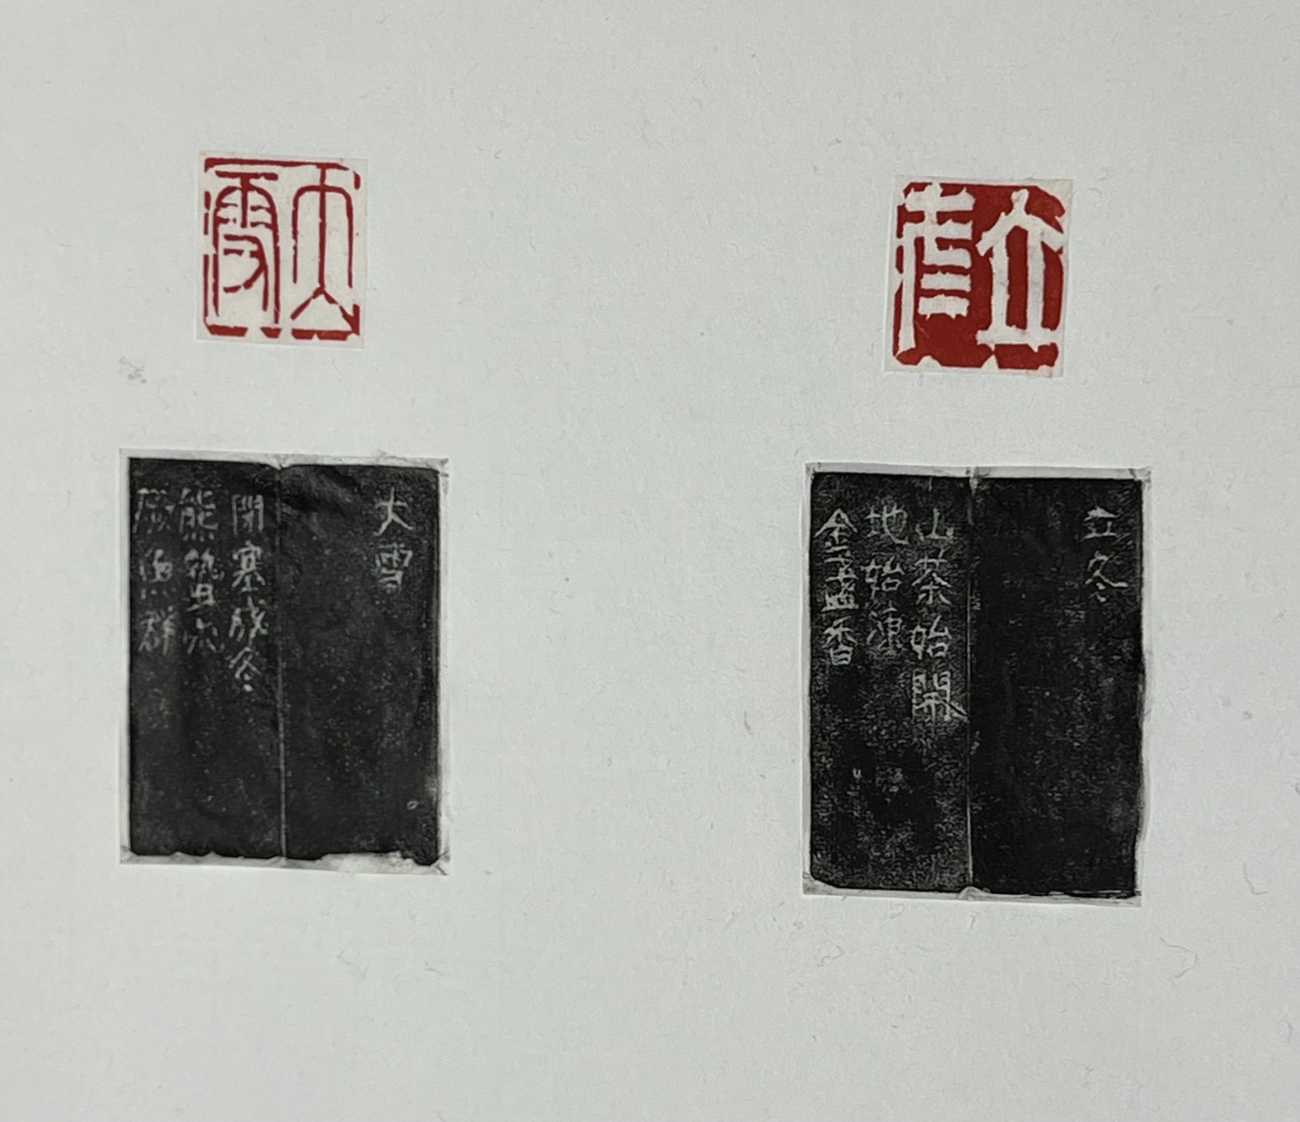 立冬
立冬
山茶始開
地始凍
金盞香
大雪
大雪
閉塞成冬
熊蟄穴
群